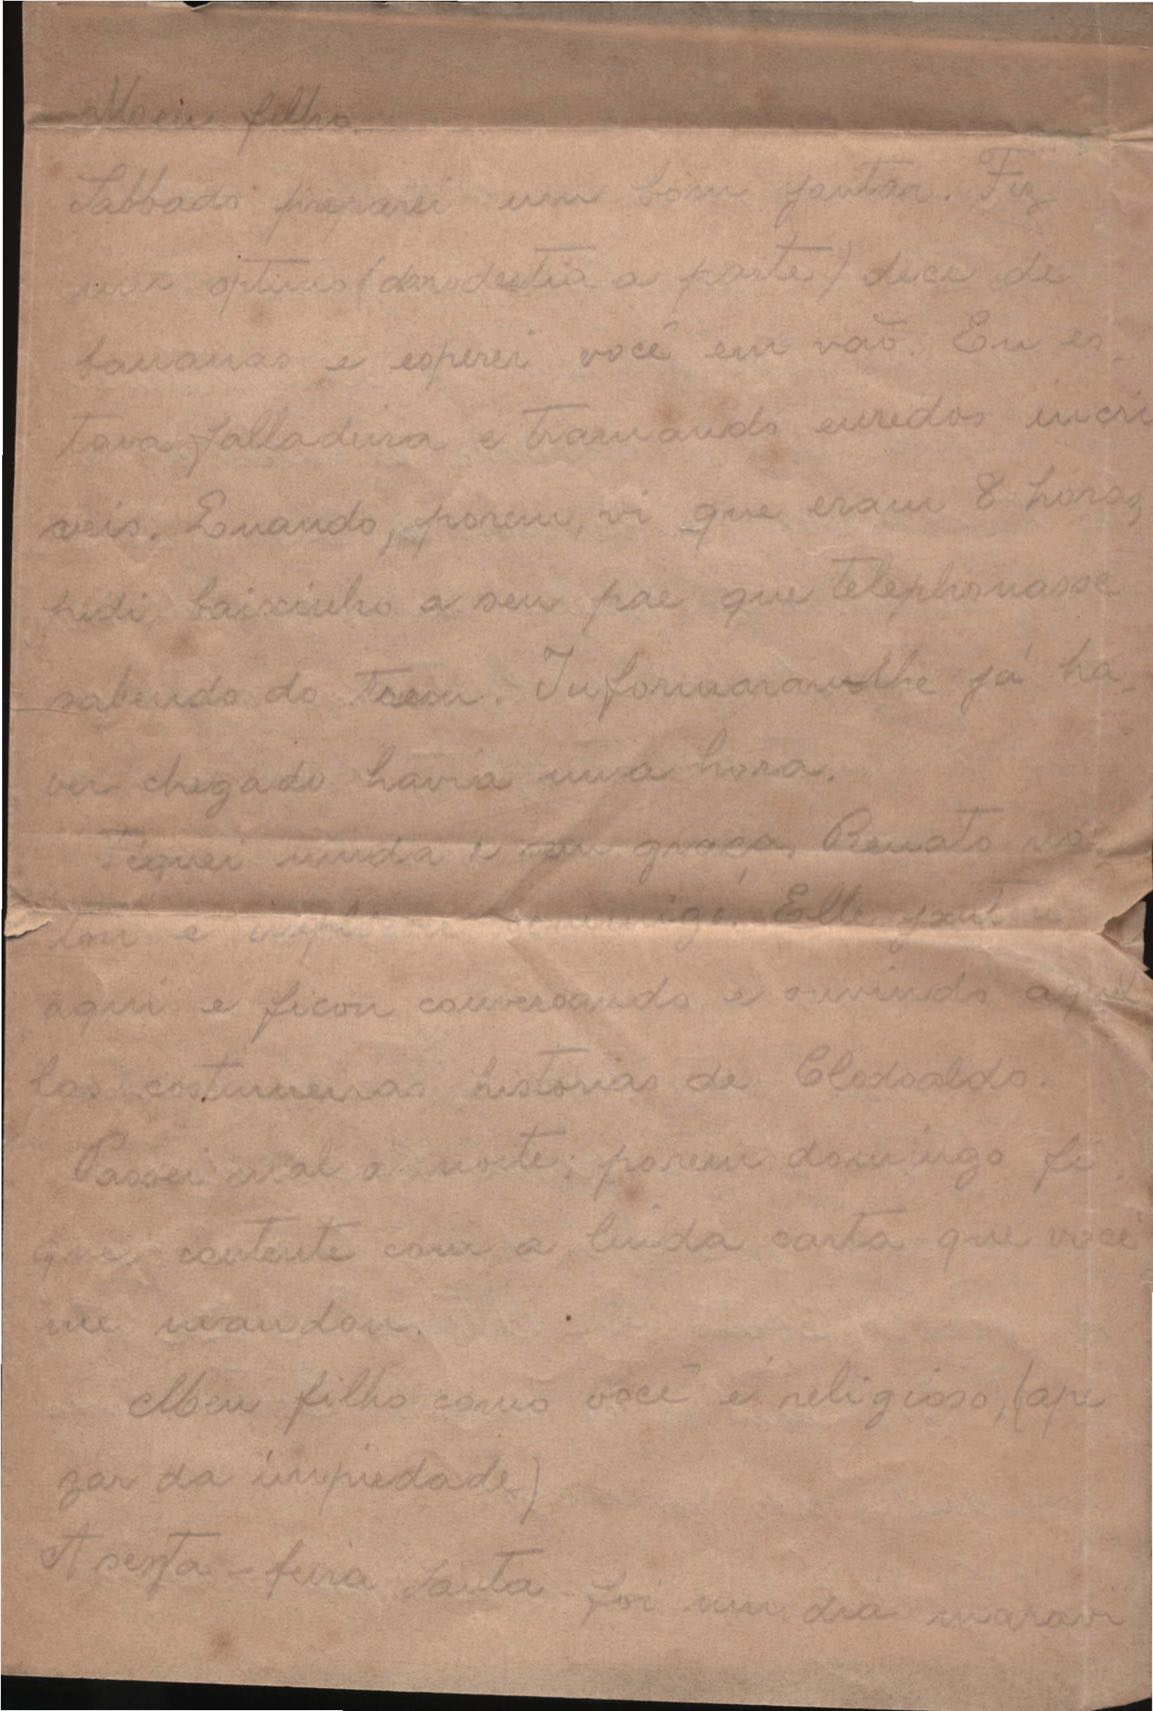 Meu filho.
Sabbado preparei um bom jantar. Fiz
um optimo (modestia a parte) doce de
bananas e esperei você em vão. Eu es-
tava falladeira e tramando enredos incri
veis. Quando, porem, vi que eram 8 horas,
pedi baixinho a seu pae que telephonasse
sabendo do trem. Informaram-lhe já ha-
ver chegado havia uma hora.
Fiquei muda e sem graça. Renato
tou e Elle jantou
aqui e ficou conversando e ouvindo aquel
las costumeiras historias de Clodoaldo.
Passei mal a noite; porem domingo fi-
quei contente com a linda carta que você
me mandou.
Meu filho como você é religioso, (ape
zar da impiedade)
A sexta-feira santa foi um dia maravi